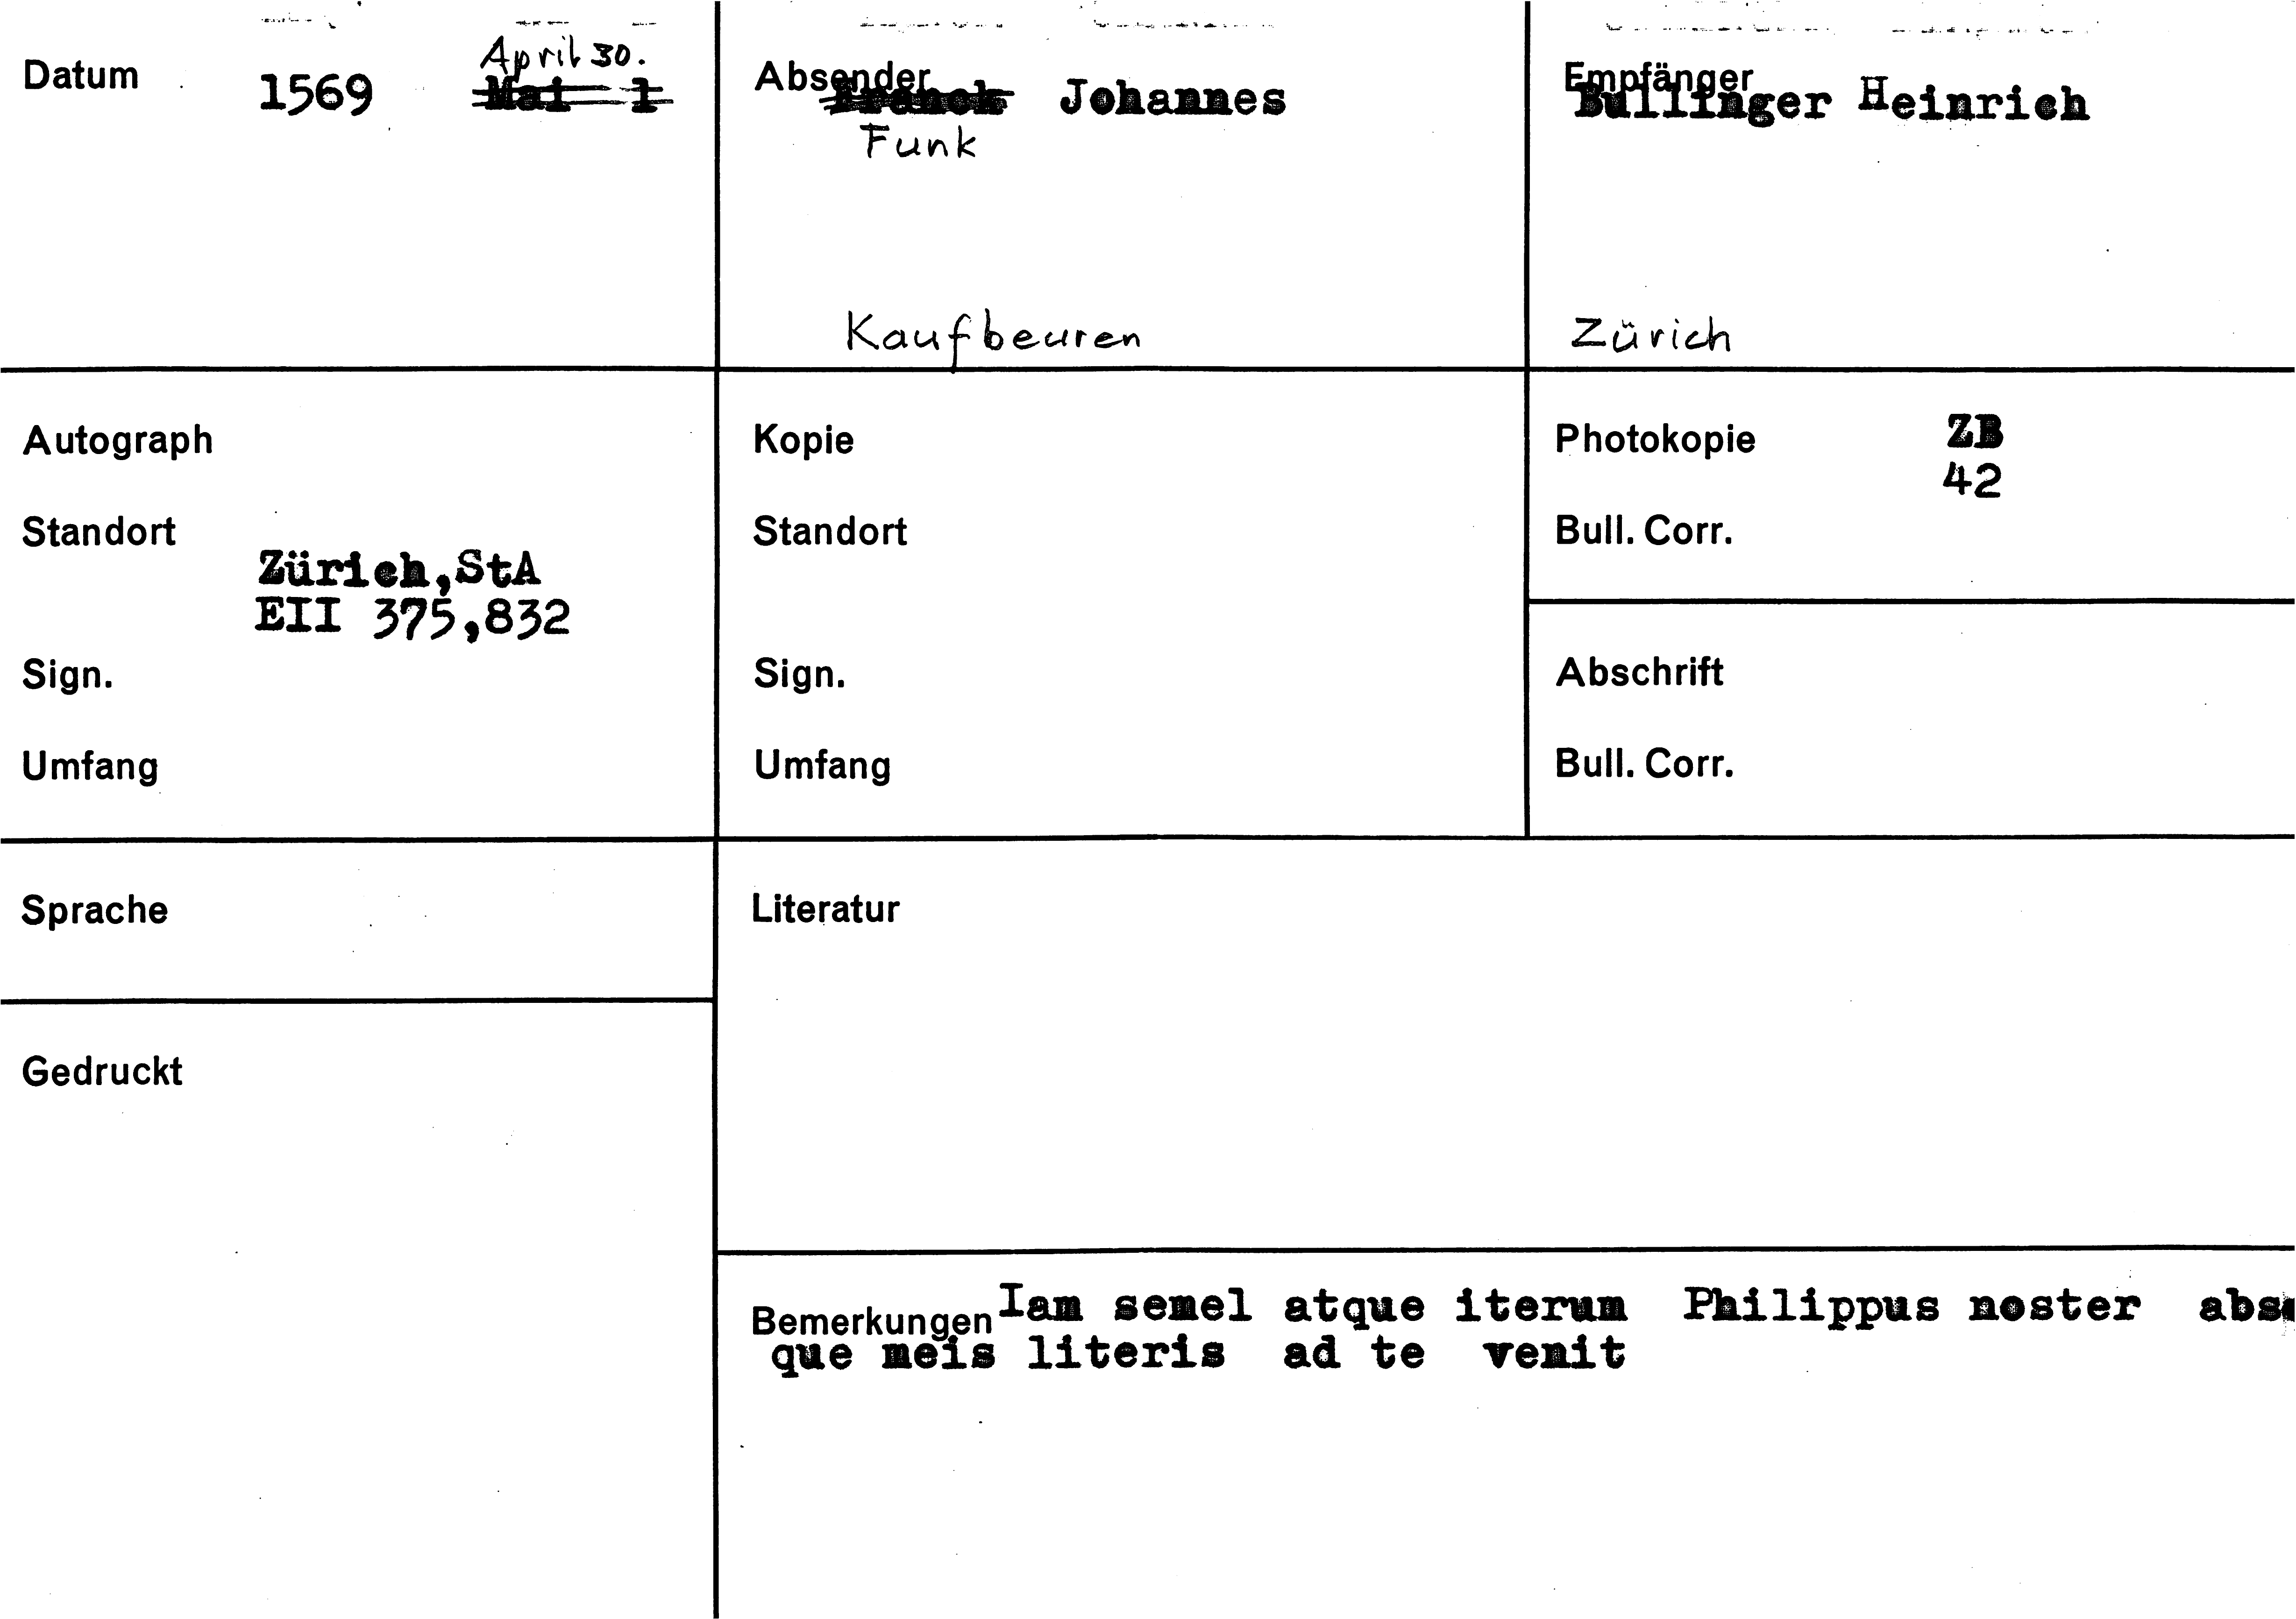 Datum 1569 April 30.
Mai 1
Absender Johannes
Funk
Kaufbeuren
Empfänger
Bullinger Heinrich
Zürich
Autograph
Standort
Zürich,StA
EII 375,832
Sign.
Umfang
Kopie
Standort
Sign.
Umfang
Photokopie ZB
42
Bull. Corr.
Abschrift
Bull. Corr.
Sprache
Gedruckt
Literatur
Bemerkungen Iam semel atque iterum Philippus noster abs
que meis literis ad te venit